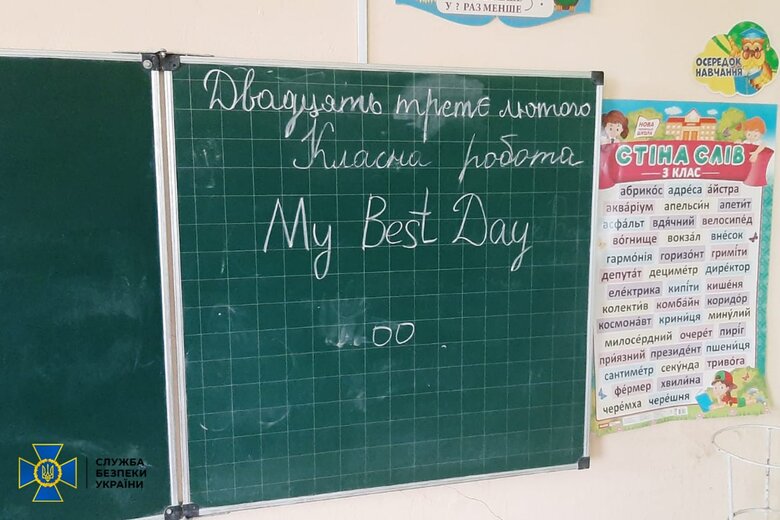 У ? РАЗ МЕНШЕ
ОСЕРЕДОК
НАВЧАННЯ
Двадцять третє лютого
Класна робота
My Best Day
оо
НОВА
ШКОЛА
СТІНА СЛІВ
3 КЛАС
абрико́с адре́са а́йстра
аква́ріум апельси́н апети́т
асфа́льт вдя́чний велосипе́д
во́гнище вокза́л вне́сок
гармо́нія горизо́нт гримі́ти
депута́т дециме́тр дире́ктор
еле́ктрика кипі́ти кише́ня
колекти́в комба́йн коридо́р
космона́вт крини́ця мину́лий
милосе́рдний очере́т пирі́г
прия́зний президе́нт пшени́ця
сантиме́тр секу́нда триво́га
фе́рмер хвили́на
чере́мха чере́шня
СЛУЖБА
БЕЗПЕКИ
УКРАЇНИ